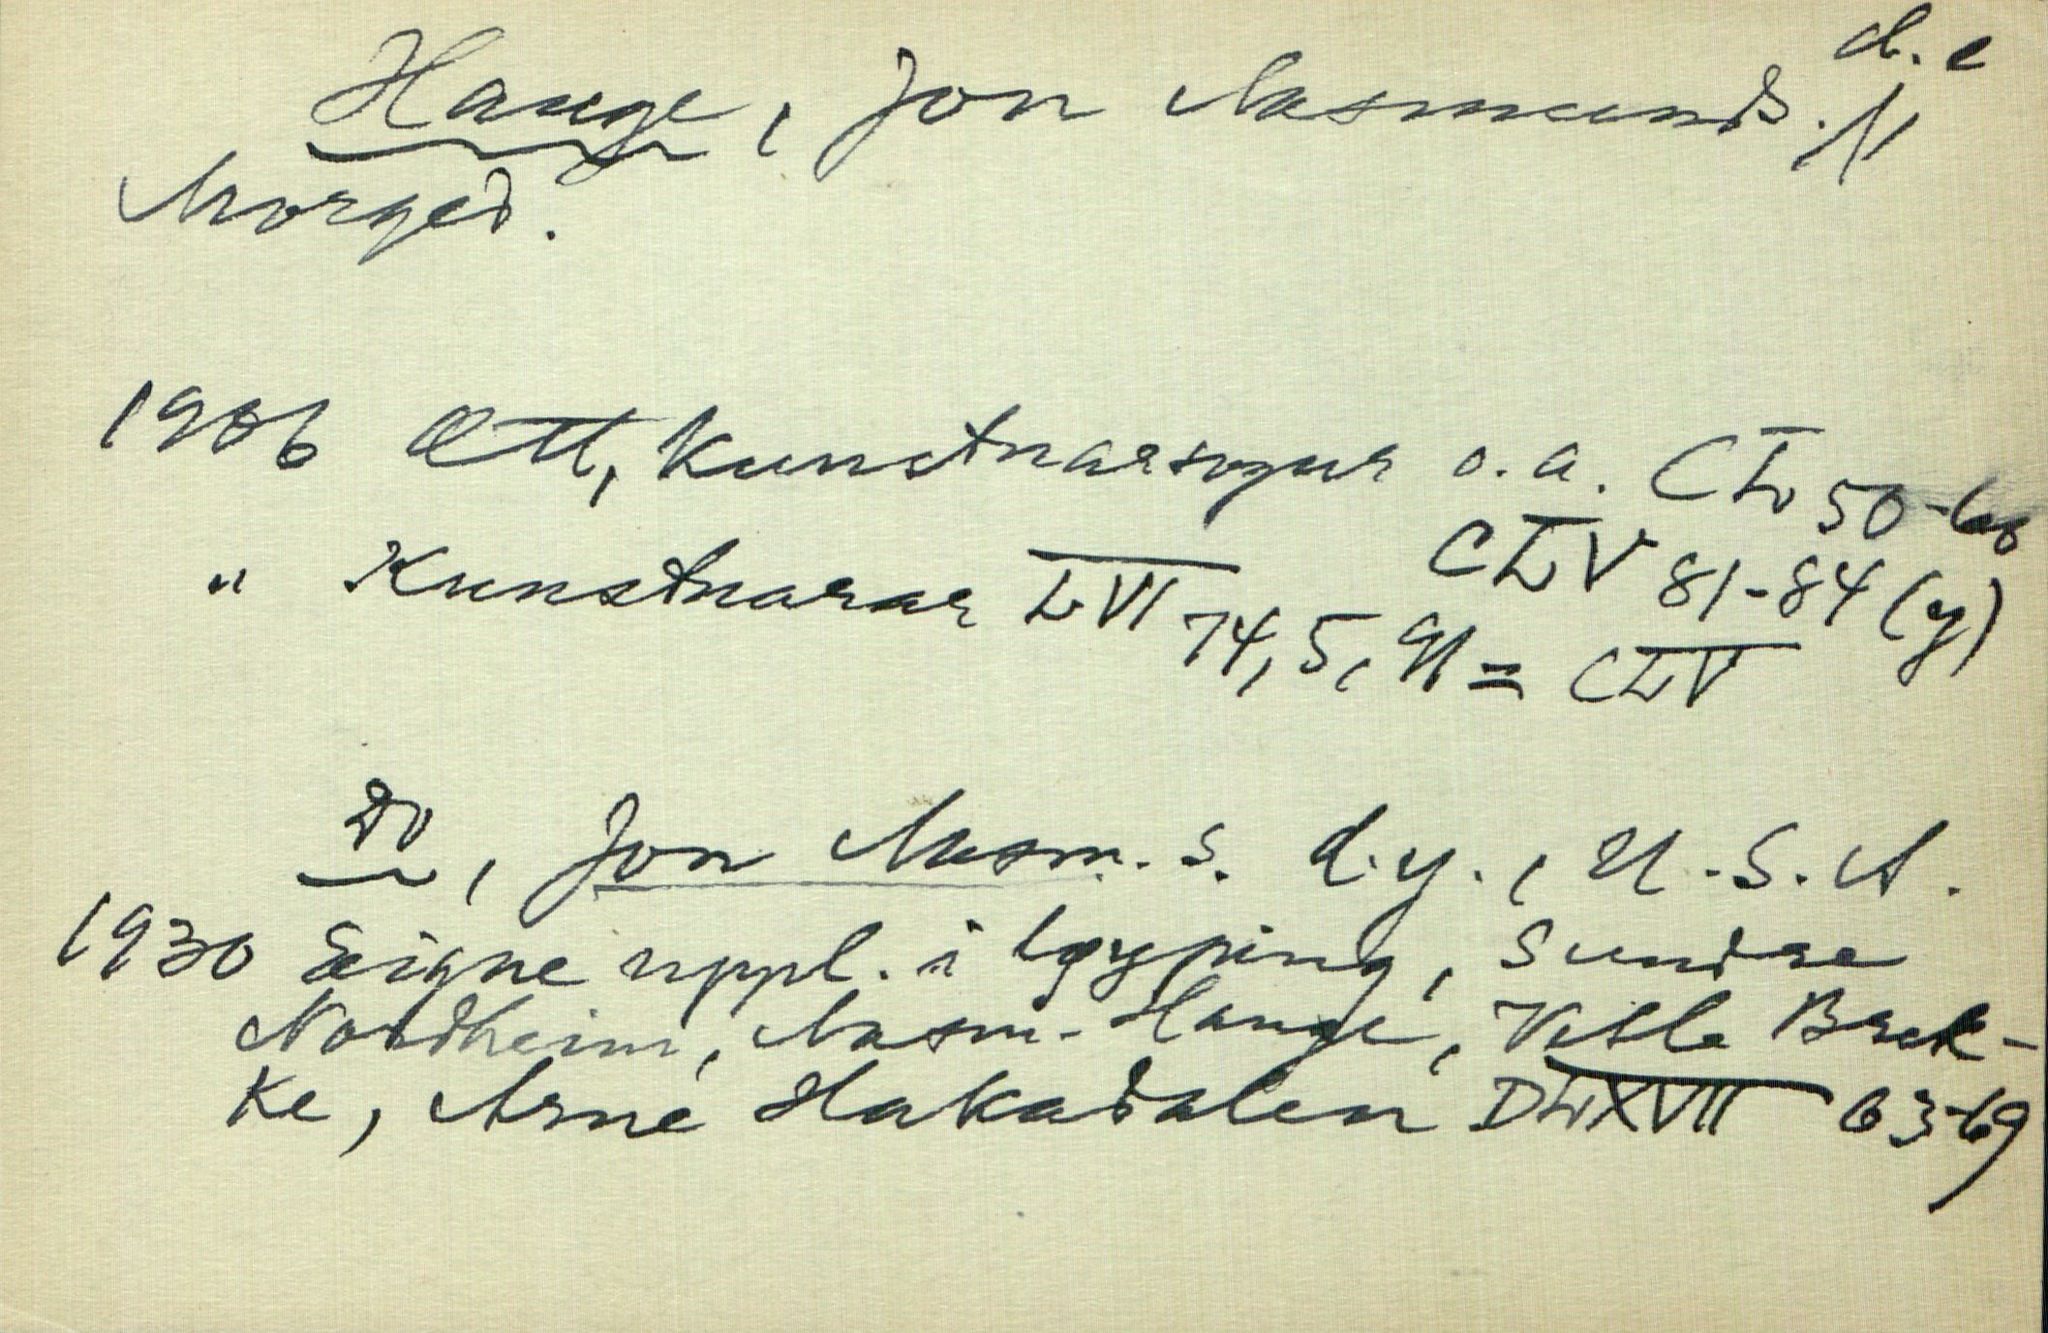 Hauge, Jon Aasmunds. d. e
Morged.
1906 Ætt, Kunstnarsogur o.a. CL 50-60
CLV 81-84 (y)
" Kunstnarar LVII 74, 5, 91 = CLV
Do, Jon Aasm. s. d.y., U.S.A.
1930 Eigne uppl. i Løyping, Sundre
Nordheim, Aasm. Hauge, Vetle Brek-
ke, Arne Hakadalen DLXVII 63-69